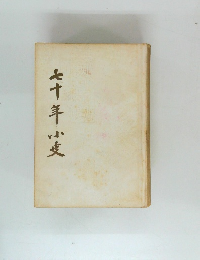 七十年小史